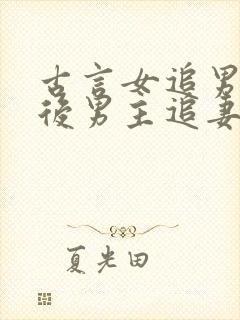 古言女追男
後男主追妻
夏光田